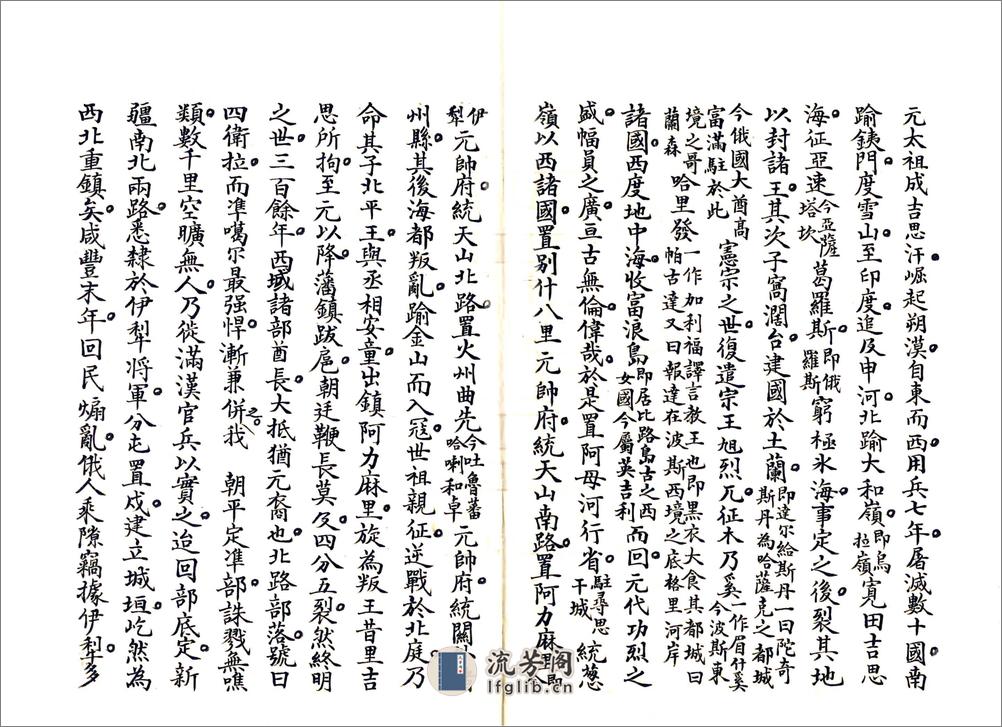 元太祖成吉思汗崛起朔漠自東而西用兵七年屠滅數十國南
踰鐵門度雪山至印度追及申河北踰大和嶺即烏拉嶺寬田吉思
海征亞速今亞薩塔坎葛羅斯即俄羅斯窮極氷海事定之後裂其地
以封諸王其次子窩濶台建國於土蘭即達尔給斯丹一曰陀奇斯丹為哈薩克之都城
今俄國大酋髙富滿駐於此憲宗之世復遣宗王旭烈兀征木乃奚一作眉什奚今波斯東
境之哥蘭森哈里發一作加利福譯言教王也即黒衣大食其都城曰帕古達又曰報達在波斯西境之底格里河岸
諸國西度地中海收富浪島即居比路島古之西女國今屬英吉利而回元代功烈之
盛幅員之廣亘古無倫偉哉於是置阿母河行省駐尋思干城統葱
嶺以西諸國置别什八里元帥府統天山南路置阿力麻里即今
伊犁元帥府統天山北路置火州曲先今吐魯蕃哈喇和卓元帥府統關
州縣其後海都叛亂踰金山而入冦世祖親征逆戰於北庭乃
命其子北平王與丞相安童出鎮阿力麻里旋為叛王昔里吉
思所拘至元以降藩鎮跋扈朝廷鞭長莫及四分五裂然終明
之世三百餘年西域諸部酋長大抵猶元裔也北路部落號曰
四衛拉而凖噶尔最强悍漸兼併之我 朝平定準部誅戮無噍
類數千里空曠無人乃徙滿漢官兵以實之迨回部底定新
疆南北兩路悉隸於伊犁將軍分屯置戍建立城垣屹然為
西北重鎮矣咸豐末年回民煽亂俄人乘隙竊據伊犁多
流芳閣
lfglib.cn